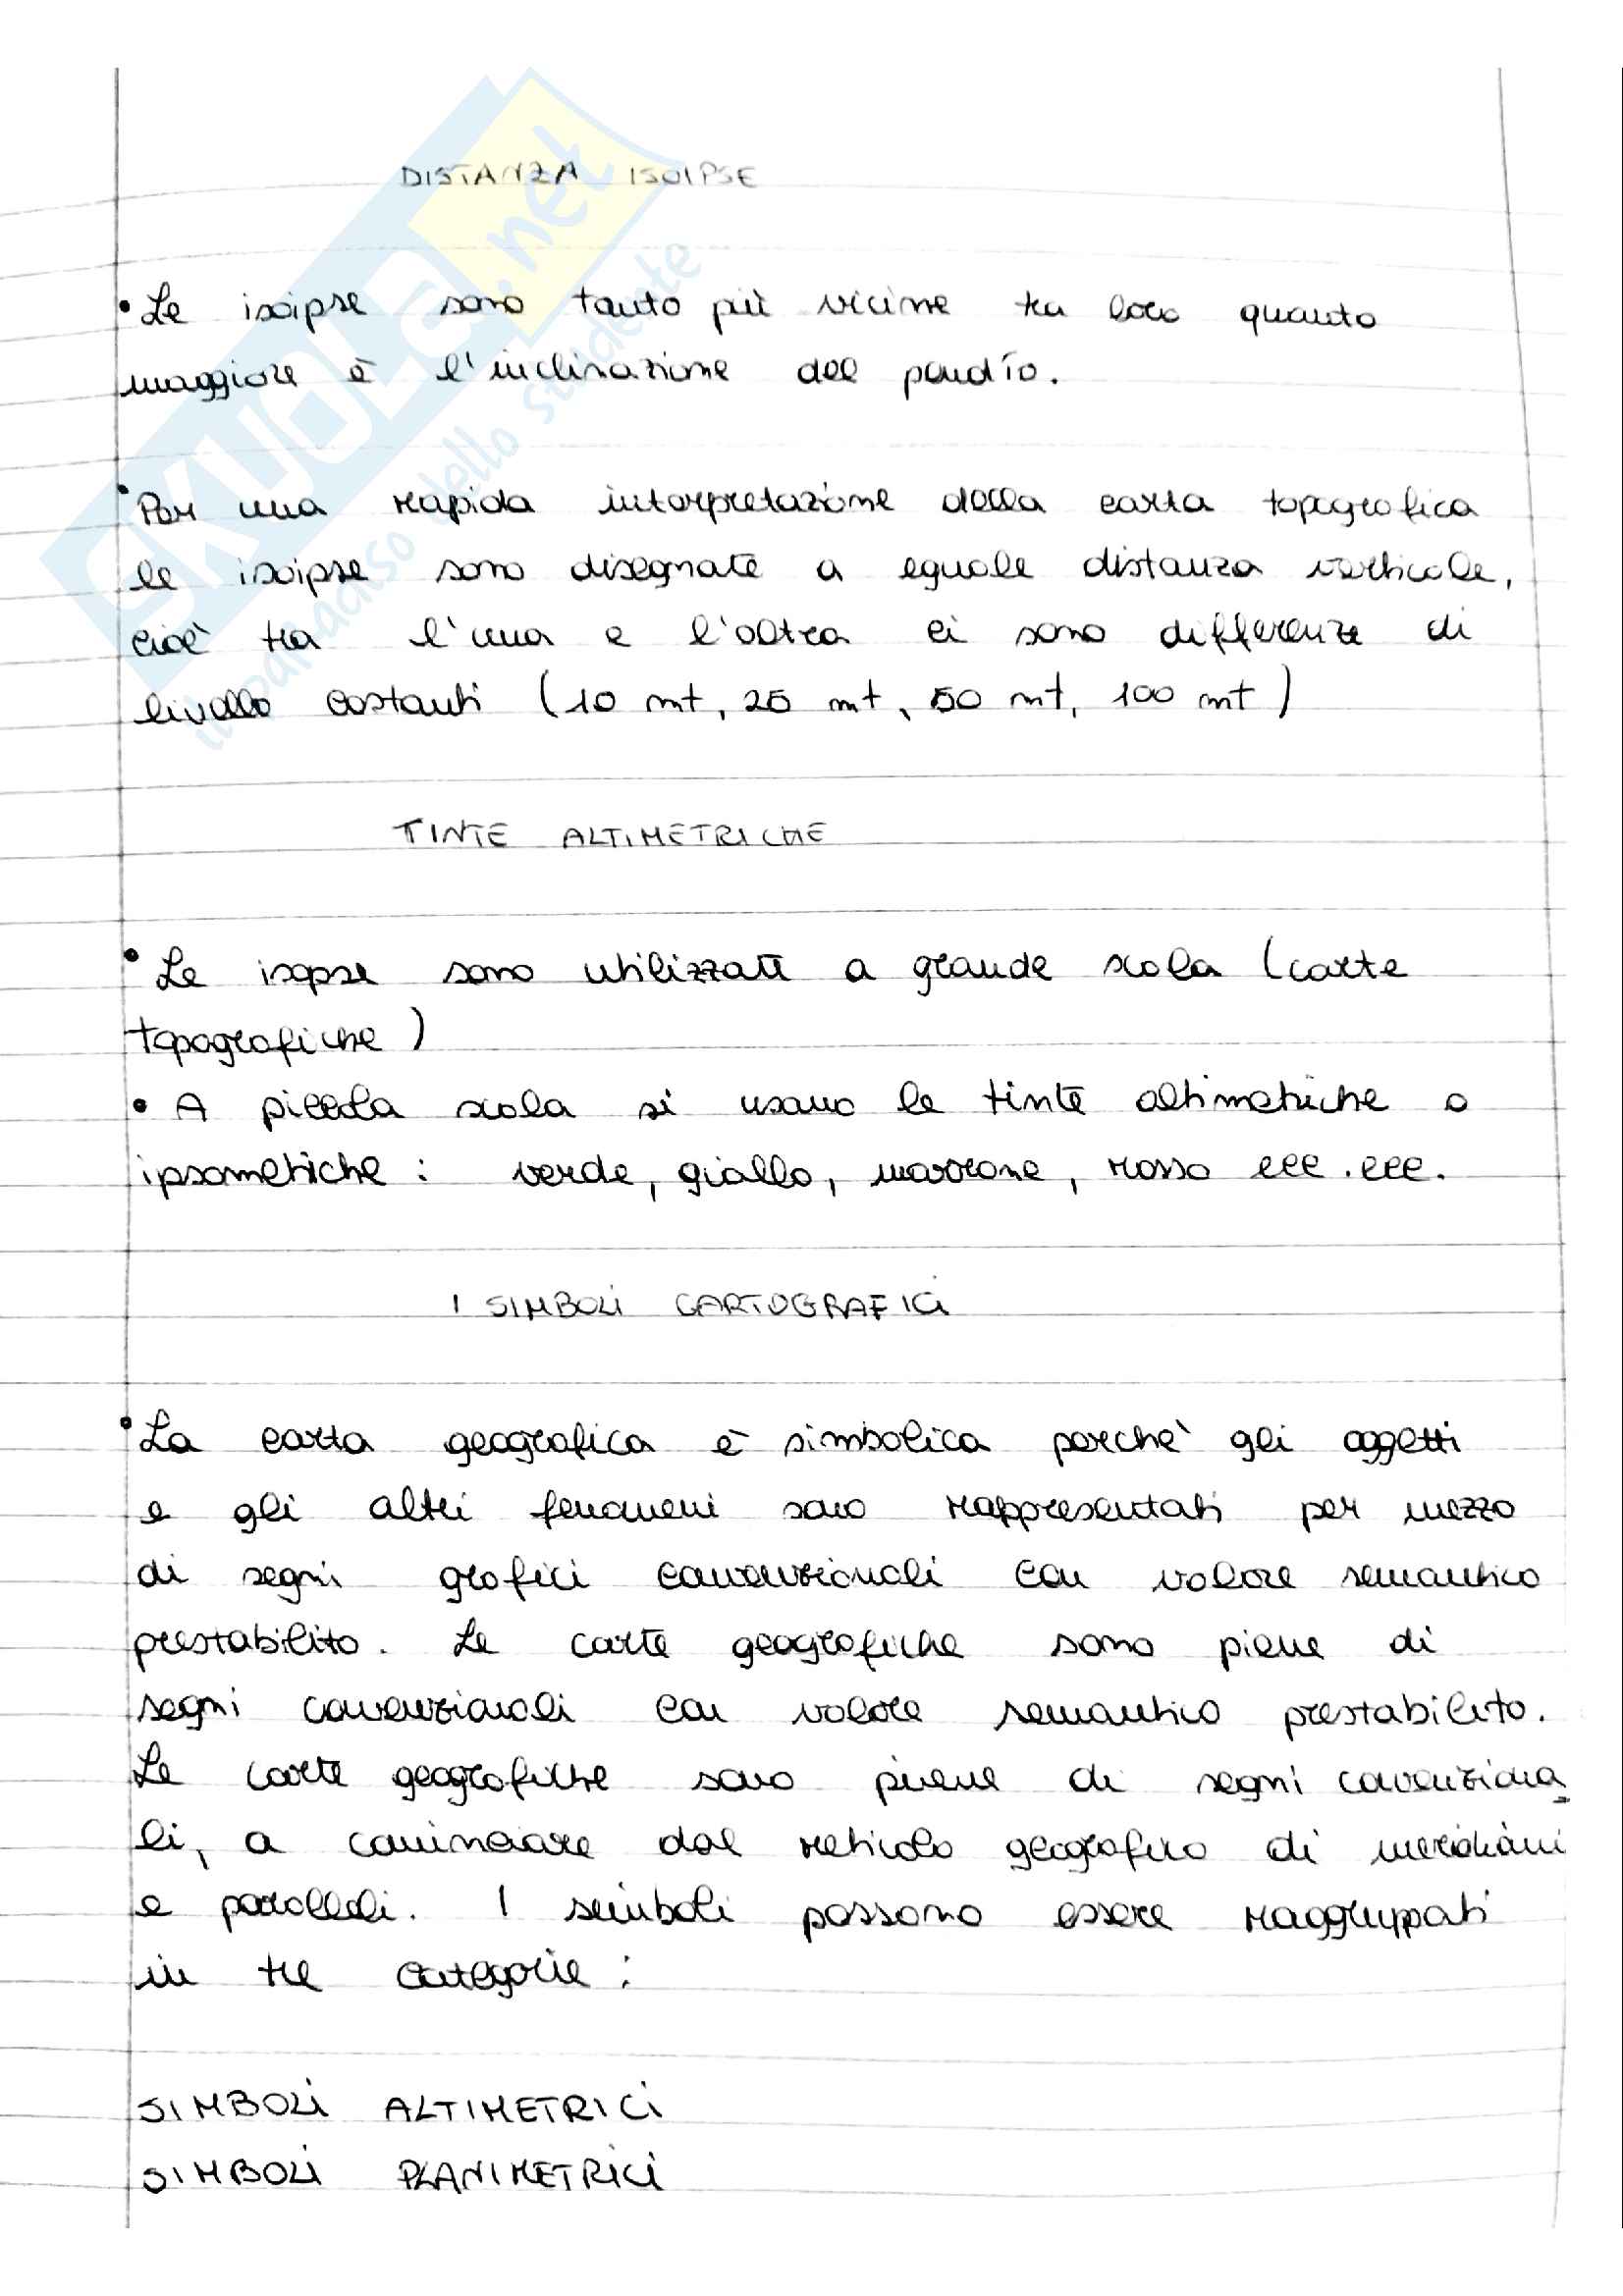 DISTANZA ISOIPSE
• Le isoipse sono tanto più vicine tra loro quanto
maggiore è l'inclinazione del pendìo.
• Per una rapida interpretazione della carta topografica
le isoipse sono disegnate a eguale distanza verticale,
cioè tra l'una e l'altra ci sono differenze di
livello costanti (10 mt, 25 mt, 50 mt, 100 mt)
TINTE ALTIMETRICHE
• Le isopse sono utilizzate a grande scala (carte
topografiche)
• A piccola scala si usano le tinte altimetriche o
ipsometriche: verde, giallo, marrone, rosso ecc. ecc.
I SIMBOLI CARTOGRAFICI
• La carta geografica è simbolica perchè gli oggetti
e gli altri fenomeni sono rappresentati per mezzo
di segni grafici convenzionali con valore semantico
prestabilito. Le carte geografiche sono piene di
segni convenzionali con valore semantico prestabilito.
Le carte geografiche sono piene di segni convenziona
li, a cominciare dal reticolo geografico di meridiani
e paralleli. I simboli possono essere raggruppati
in tre categorie:
SIMBOLI ALTIMETRICI
SIMBOLI PLANIMETRICI
SKUOLA.net
il paradiso dello studente